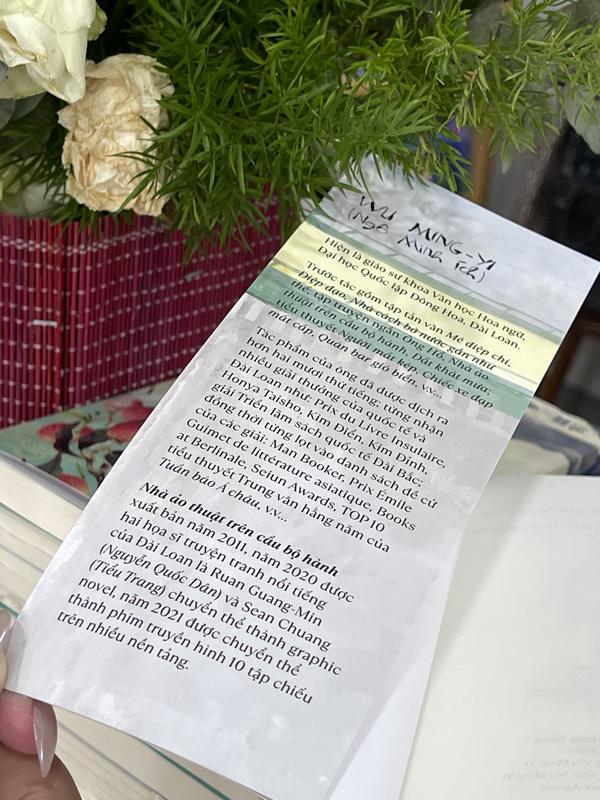 WU MING-YI
(Ngô Minh Ích)
Hiện là giáo sư khoa Văn học Hoa ngữ,
Đại học Quốc lập Đông Hoa, Đài Loan.
Trước tác gồm tập tản văn Mê điệp chí,
Điệp đạo, Nhà cách bờ nước gần như
thế, tập truyện ngắn Ông Hổ, Nhà ảo
thuật trên cầu bộ hành, Đất khát mưa;
tiểu thuyết Người mắt kép, Chiếc xe đạp
mất cắp, Quán bar gió biển, v.v...
Tác phẩm của ông đã được dịch ra
hơn hai mươi thứ tiếng; từng nhận
nhiều giải thưởng của quốc tế và
Đài Loan như: Prix du Livre Insulaire,
Honya Taisho, Kim Điển, Kim Đỉnh,
giải Triển lãm sách quốc tế Đài Bắc;
đồng thời từng lọt vào danh sách đề cử
của các giải: Man Booker, Prix Émile
Guimet de littérature asiatique, Books
at Berlinale, Seiun Awards, TOP 10
tiểu thuyết Trung văn hằng năm của
Tuần báo Á châu, v.v...
Nhà ảo thuật trên cầu bộ hành
xuất bản năm 2011, năm 2020 được
hai họa sĩ truyện tranh nổi tiếng
của Đài Loan là Ruan Guang-Min
(Nguyễn Quốc Dân) và Sean Chuang
(Tiểu Trang) chuyển thể thành graphic
novel, năm 2021 được chuyển thể
thành phim truyền hình 10 tập chiếu
trên nhiều nền tảng.